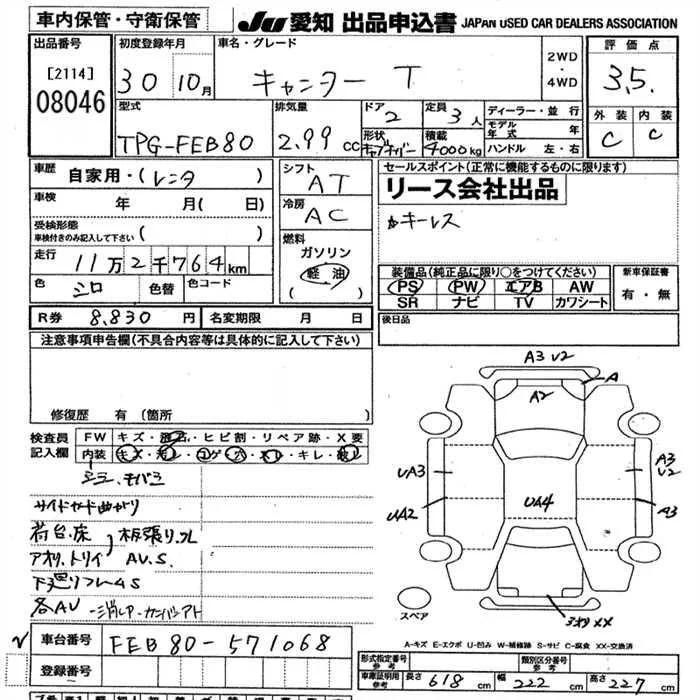 車内保管・守衛保管
JU 愛知 出品申込書 JAPAN USED CAR DEALERS ASSOCIATION
出品番号
[2114]
08046
初度登録年月
30 10月
車名・グレード
キャンター T
2WD
・
4WD
評価点
3.5
外装 内装
C C
型式
TPG-FEB80
排気量
2.99 cc
ドア
2
定員
3人
形状
積載
4000kg
ディーラー・並行
モデル年式 年
ハンドル 左・右
車歴
自家用・(レンタ)
車検
年 月( 日)
受検形態
車検付きのみ記入して下さい
( )
走行
11万2千764km
色
シロ
色替
色コード
シフト
AT
冷房
AC
燃料
ガソリン
軽油
( )
セールスポイント(正常に機能するものに限ります)
リース会社出品
キーレス
装備品(純正品に限り○をつけてください)
PS PW エアB AW
SR ナビ TV カワシート
新車保証書
有・無
R券 8,830円
名変期限 月 日
後日品
注意事項申告欄(不具合内容等は具体的に記入して下さい)
修復歴 有(箇所 )
検査員
記入欄
FW キズ・飛石・ヒビ割・リペア跡・X要
内装 キズ・汚レ・コゲ・穴・スレ・キレ・欠レ
サイドガード曲がり
荷台.床
板張り.フレ
アオリ.トリイ AV.S.
下廻リフレームS
各AV
A3 V2
A
A2
UA3
UA2
UA4
A3
V2
A3
スペア
XX
A-キズ E-エクボ U-凹み W-補修跡 S-サビ C-腐食 XX-交換済
車台番号
FEB80-571068
登録番号
形式指定番号
参考
類別区分番号
参考
車庫証明用
参考
長さ 618 cm
幅 222 cm
高さ 227 cm